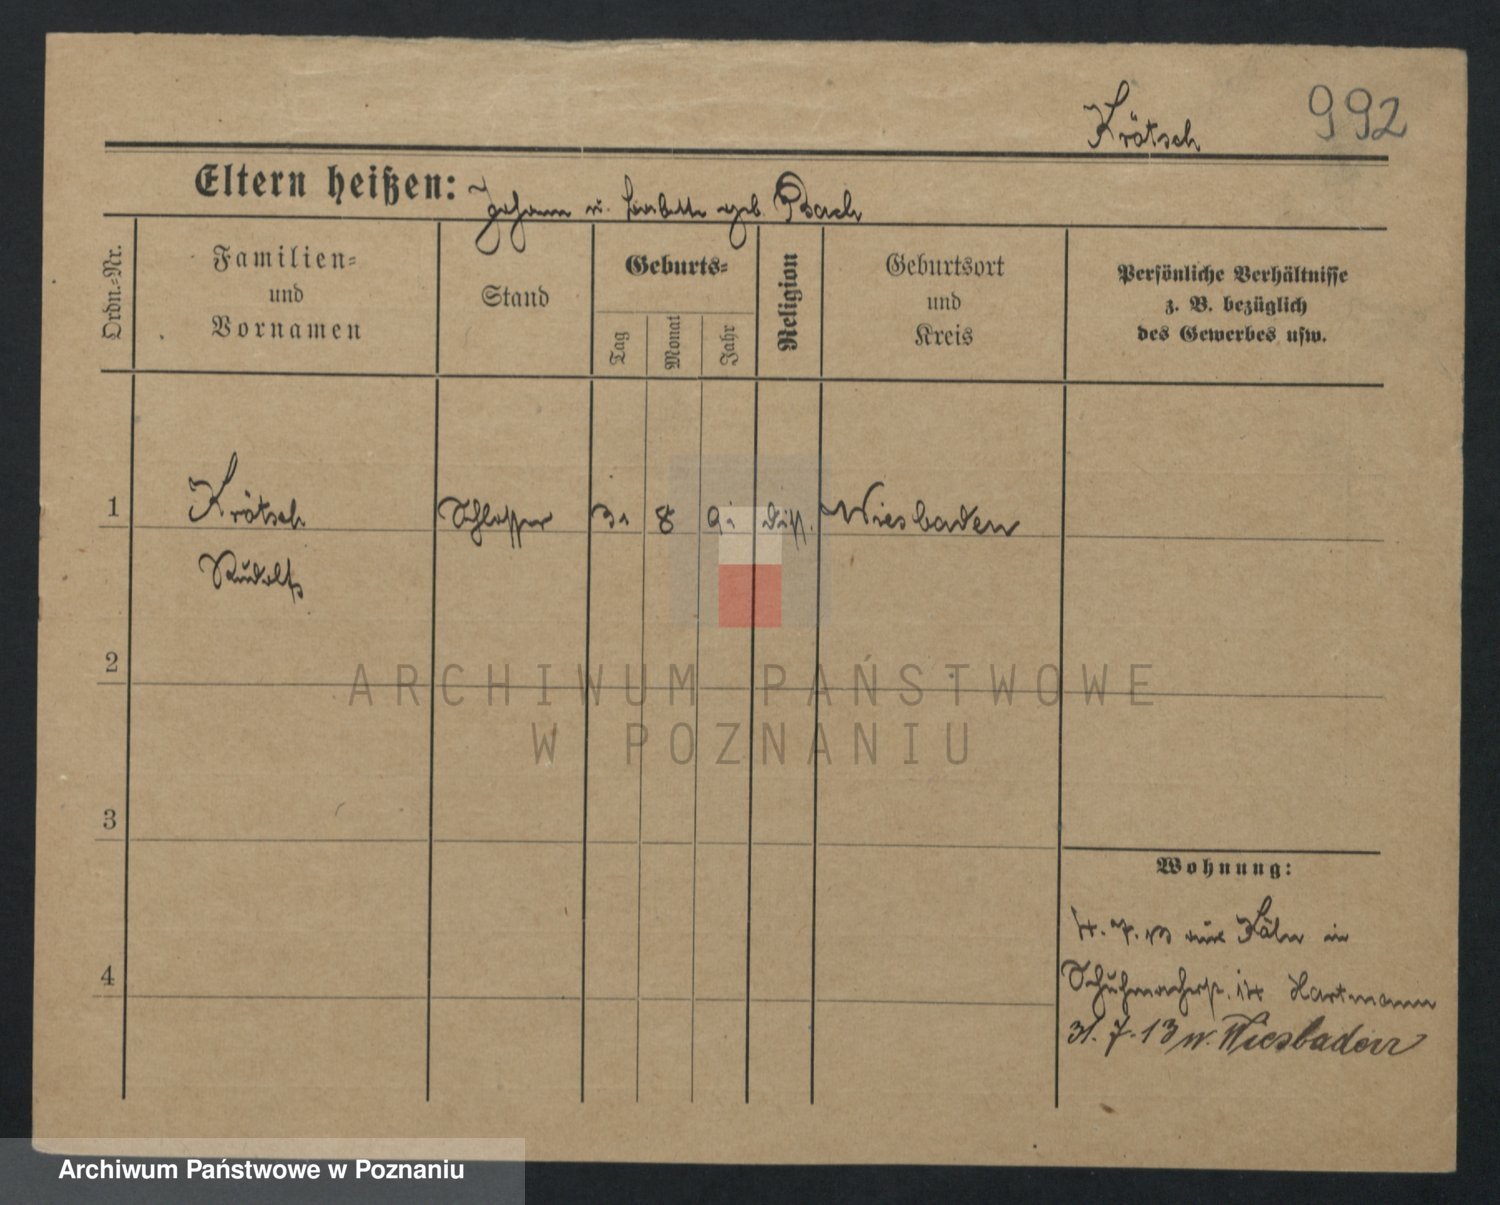 Krätsch 992
Eltern heißen: Johann u. geb.
Ordn.-Nr.
Familien=
und
Vornamen
Stand
Geburts=
Tag
Monat
Jahr
Religion
Geburtsort
und
Kreis
Persönliche Verhältnisse
z. B. bezüglich
des Gewerbes usw.
1 Krätsch Schlosser 31 8 91 diss. Wiesbaden
Rudolf
2
ARCHIWUM PAŃSTWOWE
W POZNANIU
3
4
Wohnung:
14. 7. 13 Köln in
Schuhmacherstr. 14 Hartmann
31. 7. 13 n. Wiesbaden
Archiwum Państwowe w Poznaniu